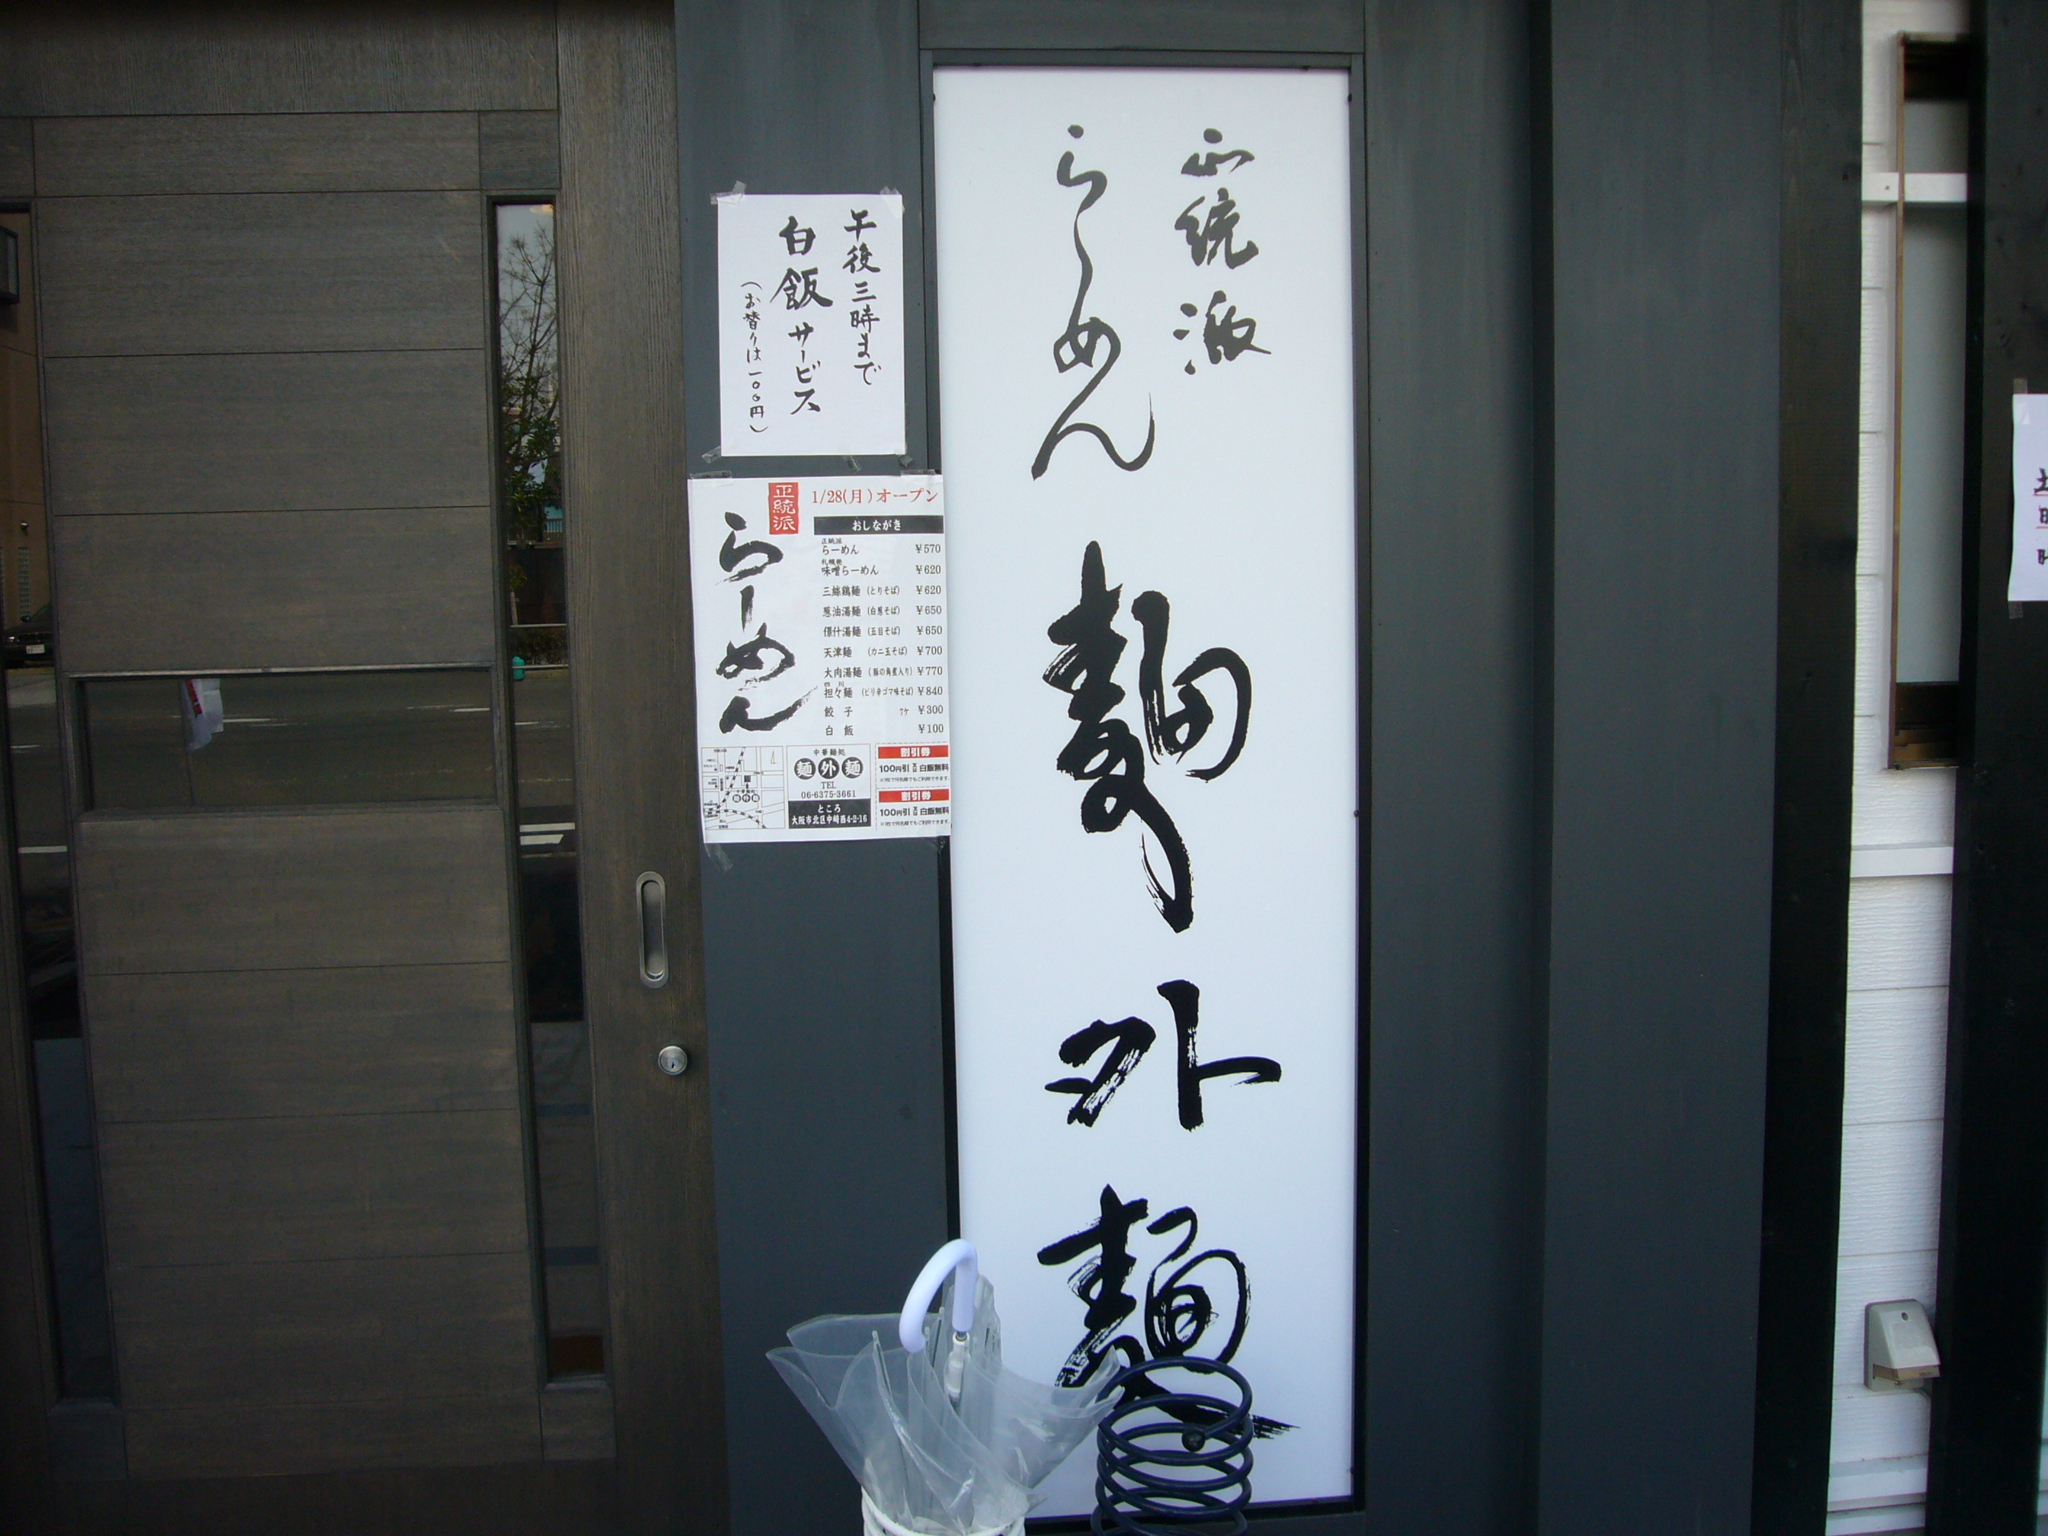 正統派
らーめん
麺外麺
午後三時まで
白飯サービス
(お替りは一〇〇円)
正統派
らーめん
1/28(月)オープン
おしながき
正統派
らーめん ¥570
味噌らーめん ¥620
三絲鶏麺 (とりそば) ¥620
葱油湯麺 (白葱そば) ¥650
什湯麺 (五目そば) ¥650
天津麺 (カニ玉そば) ¥700
大肉湯麺 (豚の角煮入り) ¥770
四川
担々麺 (ピリ辛ゴマ味そば) ¥840
餃子 7ケ ¥300
白飯 ¥100
中華麺処
麺外麺
TEL
06-6375-3661
ところ
大阪市北区中崎西4-2-16
割引券
100円引 又は 白飯無料
割引券
100円引 又は 白飯無料